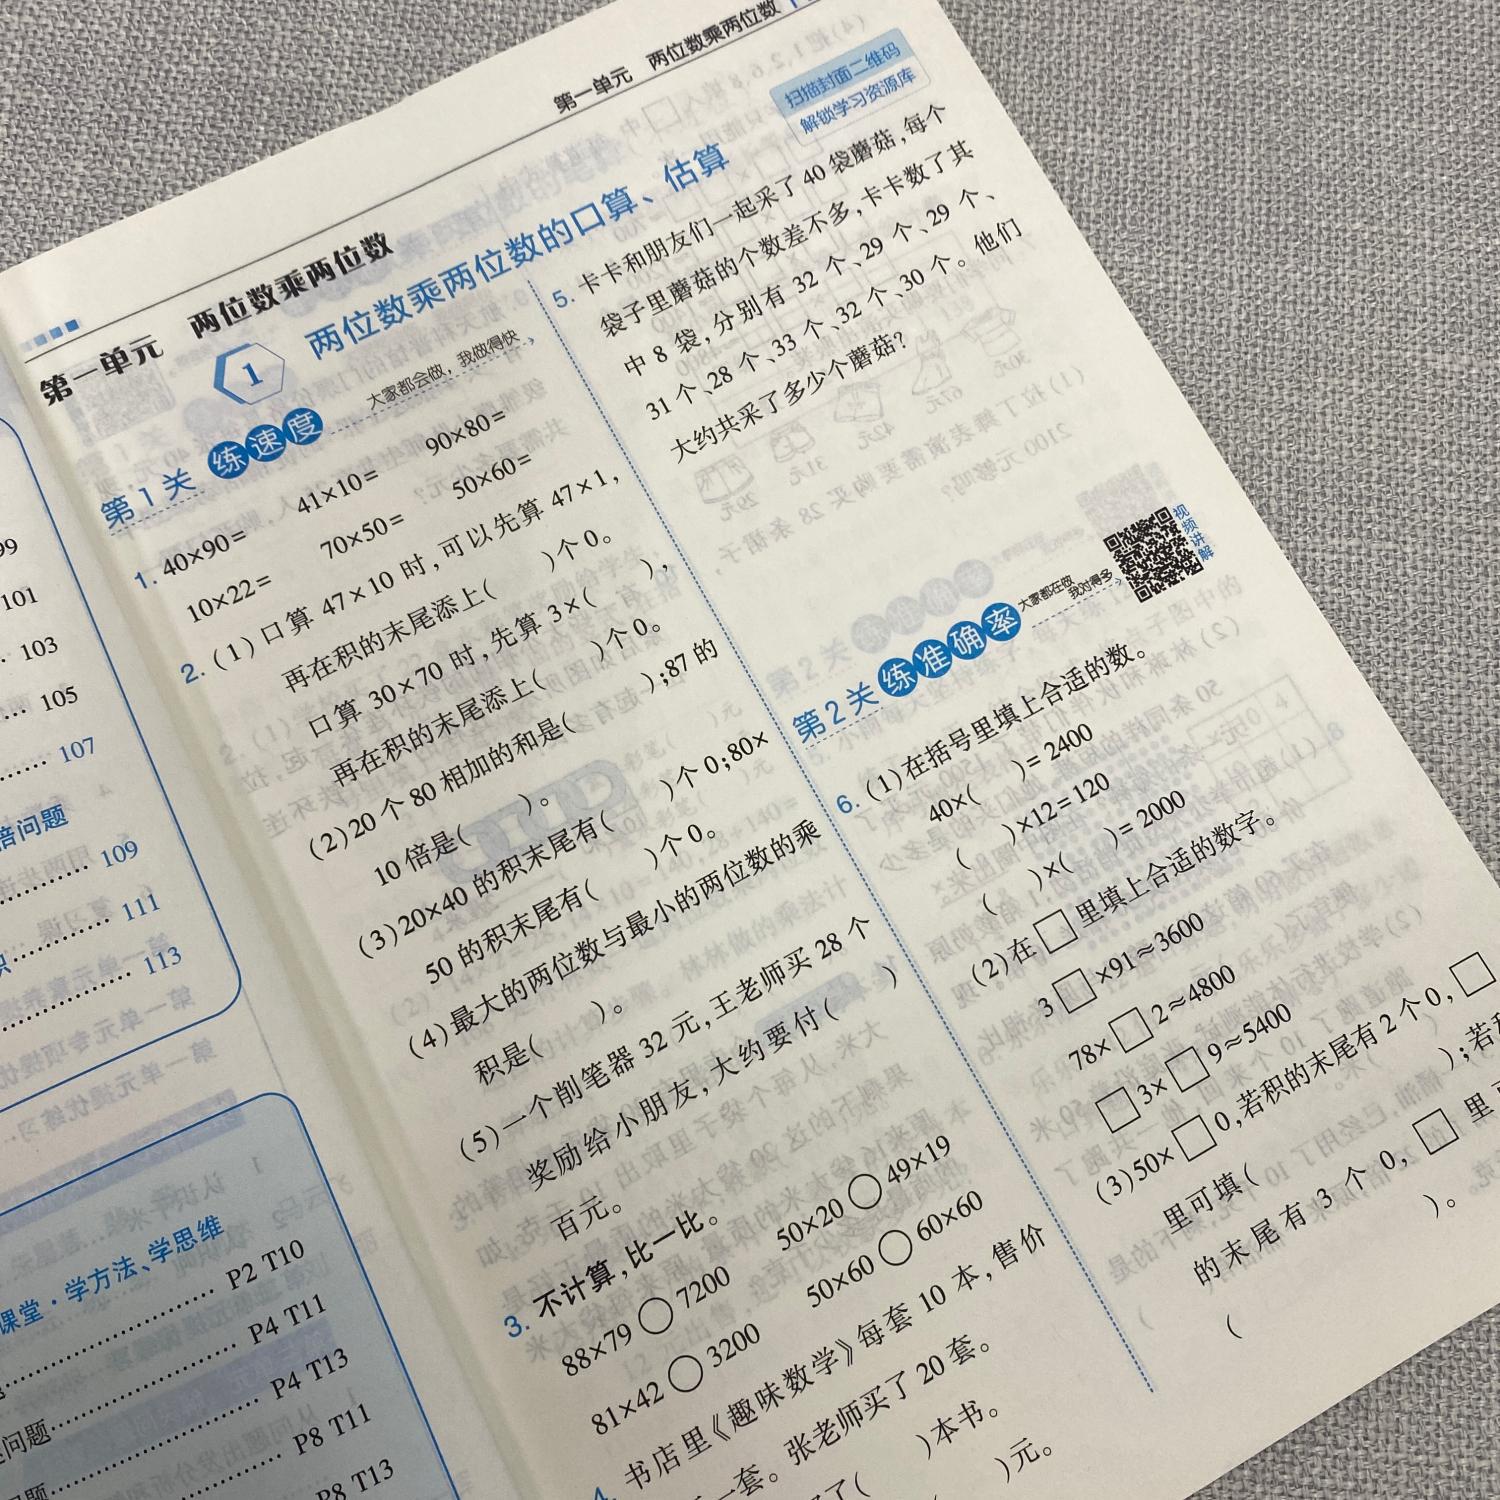 第一单元 两位数乘两位数
扫描封面二维码
解锁学习资源库
第一单元 两位数乘两位数
1 两位数乘两位数的口算、估算
第1关 练速度 大家都会做，我做得快
1. 40×90= 41×10= 90×80=
10×22= 70×50= 50×60=
2. (1)口算 47×10 时,可以先算 47×1,
再在积的末尾添上( )个0。
口算 30×70 时,先算 3×( ),
再在积的末尾添上( )个0。
(2)20 个 80 相加的和是( );87 的
10 倍是( )。
(3)20×40 的积末尾有( )个 0;80×
50 的积末尾有( )个 0。
(4)最大的两位数与最小的两位数的乘
积是( )。
(5)一个削笔器 32 元,王老师买 28 个
奖励给小朋友,大约要付( )
百元。
3. 不计算,比一比。
88×79○7200 50×20○49×19
81×42○3200 50×60○60×60
4. 书店里《趣味数学》每套 10 本,售价
一套。张老师买了 20 套。
了( )本书。
( )元。
5. 卡卡和朋友们一起采了 40 袋蘑菇,每个
袋子里蘑菇的个数差不多,卡卡数了其
中 8 袋,分别有 32 个、29 个、29 个、
31 个、28 个、33 个、32 个、30 个。他们
大约共采了多少个蘑菇?
视频讲解
第2关 练准确率 大家都在做
我对得多
6. (1)在括号里填上合适的数。
40×( )=2400
( )×12=120
( )×( )=2000
(2)在□里填上合适的数字。
3□×91≈3600
78×□2≈4800
□3×□9≈5400
(3)50×□0,若积的末尾有2个0,□
里可填( );若积
的末尾有 3 个 0,□里可
( )。
99
101
103
105
107
倍问题
109
111
113
课堂·学方法、学思维
P2 T10
P4 T11
P4 T13
问题 P8 T11
P8 T13